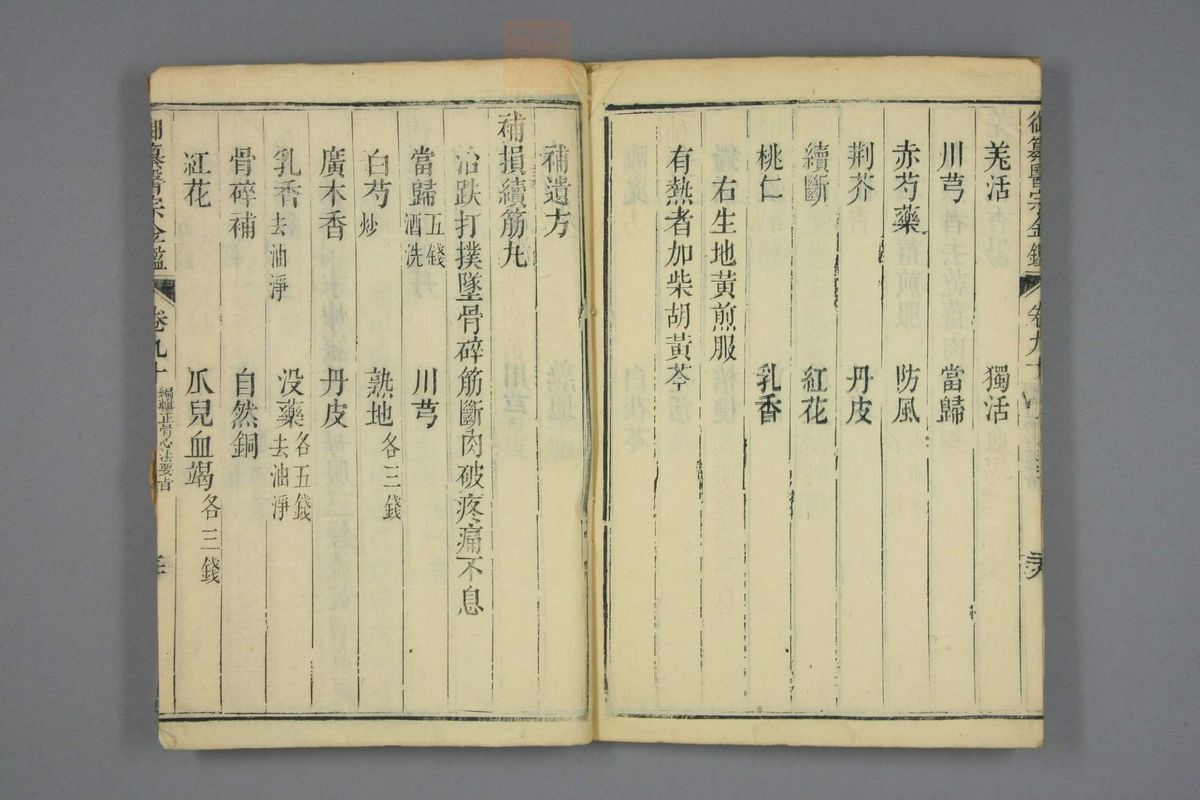 羗活 獨活
川芎 當歸
赤芍藥 防風
荆芥 丹皮
續斷 紅花
桃仁 乳香
右生地黃煎服
有熱者加柴胡黃芩
補遺方
補損續筋丸
治跌打撲墜骨碎筋斷肉破疼痛不息
當歸五錢酒洗 川芎
白芍炒 熟地各三錢
廣木香 丹皮
乳香去油淨 没藥各五錢去油淨
骨碎補 自然銅
紅花 瓜兒血竭各三錢
御纂醫宗金鑑 卷九十 編輯正骨心法要旨